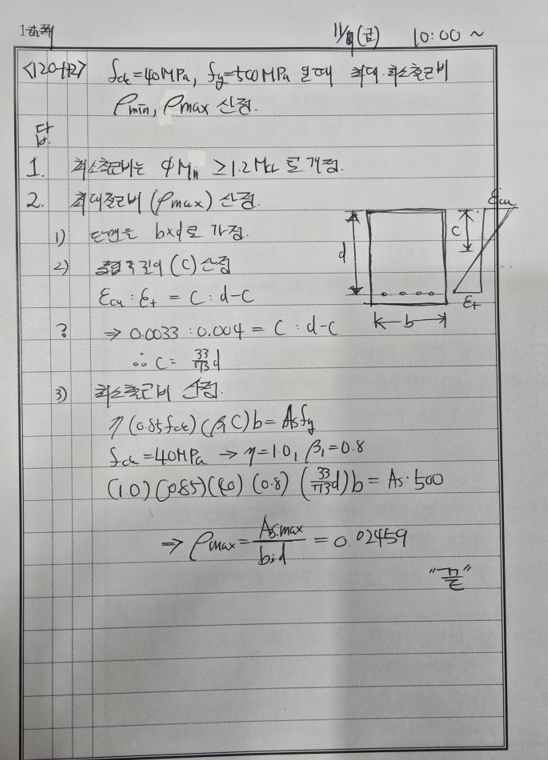 1교시 11/ (금) 10:00 ~
<120-1-12> fck=40MPa, fy=500MPa 일때 최대·최소철근비
ρmin, ρmax 산정.
답.
1. 최소철근비는 φMn ≥1.2Mcr 로 개정.
2. 최대철근비 (ρmax) 산정
1) 단면을 b×d로 가정.
2) 중립축 깊이 (C) 산정
εcu : εt = C : d-C
? ⇒ 0.0033 : 0.004 = C : d-C
∴ C = 33/73 d
3) 최소철근비 산정.
η (0.85fck) (β₁C) b = Asfy
fck=40MPa → η=1.0, β₁=0.8
(1.0) (0.85) (40) (0.8) (33/73 d) b = As·500
⇒ ρmax = As,max / b·d = 0.02459
"끝"
εcu
C
d
εt
b